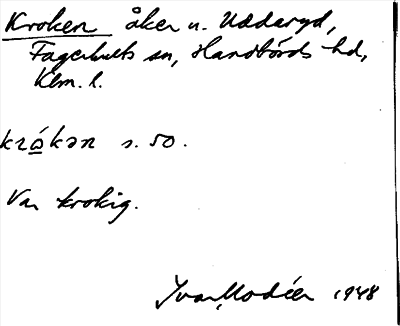 Kroken åker u. Uddaryd,
Fagerhults sn, Handbörds hd,
Klm. l.
krókən s. 50.
Var krokig.
Ivar Modéer 1948